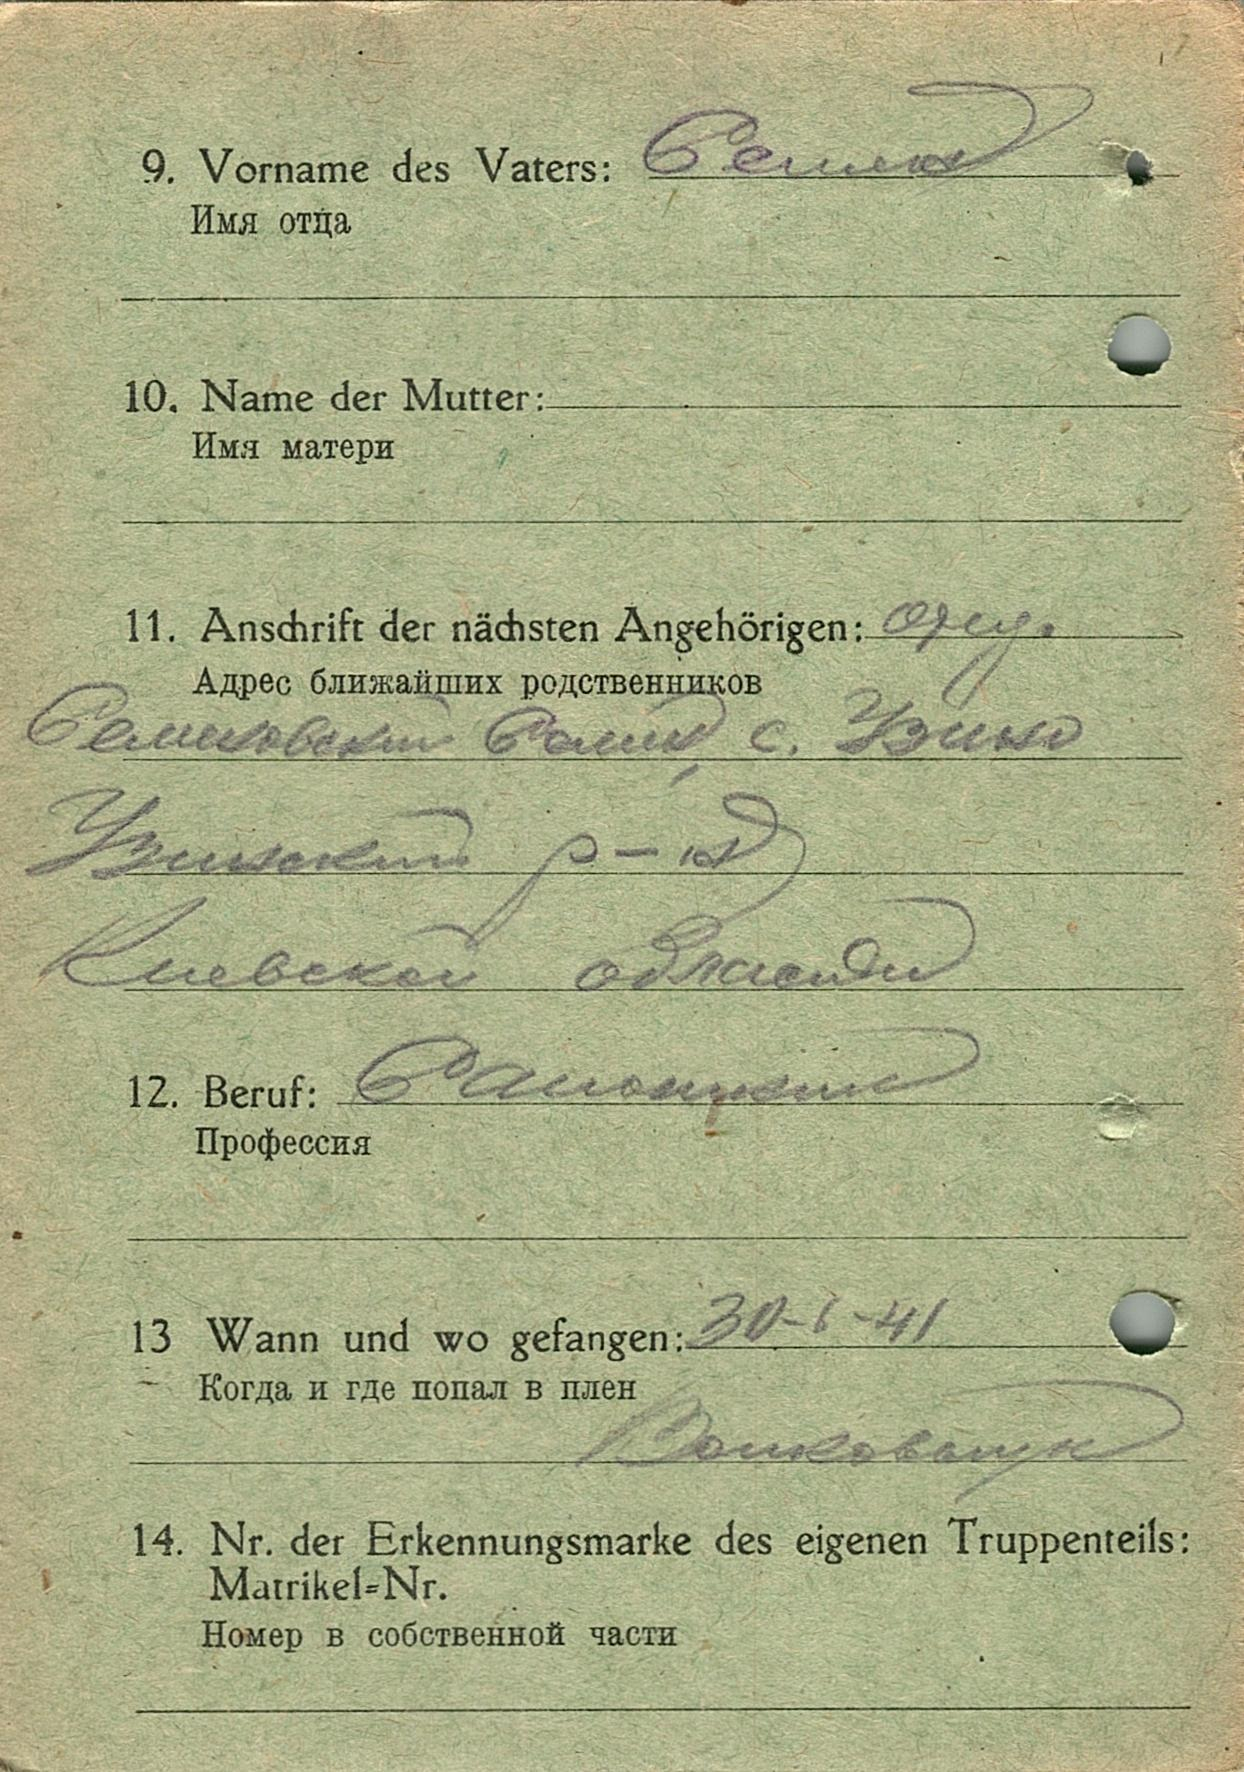 9. Vorname des Vaters: Семен
Имя отца
10. Name der Mutter:
Имя матери
11. Anschrift der nächsten Angehörigen: отец
Адрес ближайших родственников
с. Узино
Узинский р-н
Киевской области
12. Beruf: Сапожник
Профессия
13 Wann und wo gefangen: 30-6-41
Когда и где попал в плен
Волковыск
14. Nr. der Erkennungsmarke des eigenen Truppenteils:
Matrikel=Nr.
Номер в собственной части